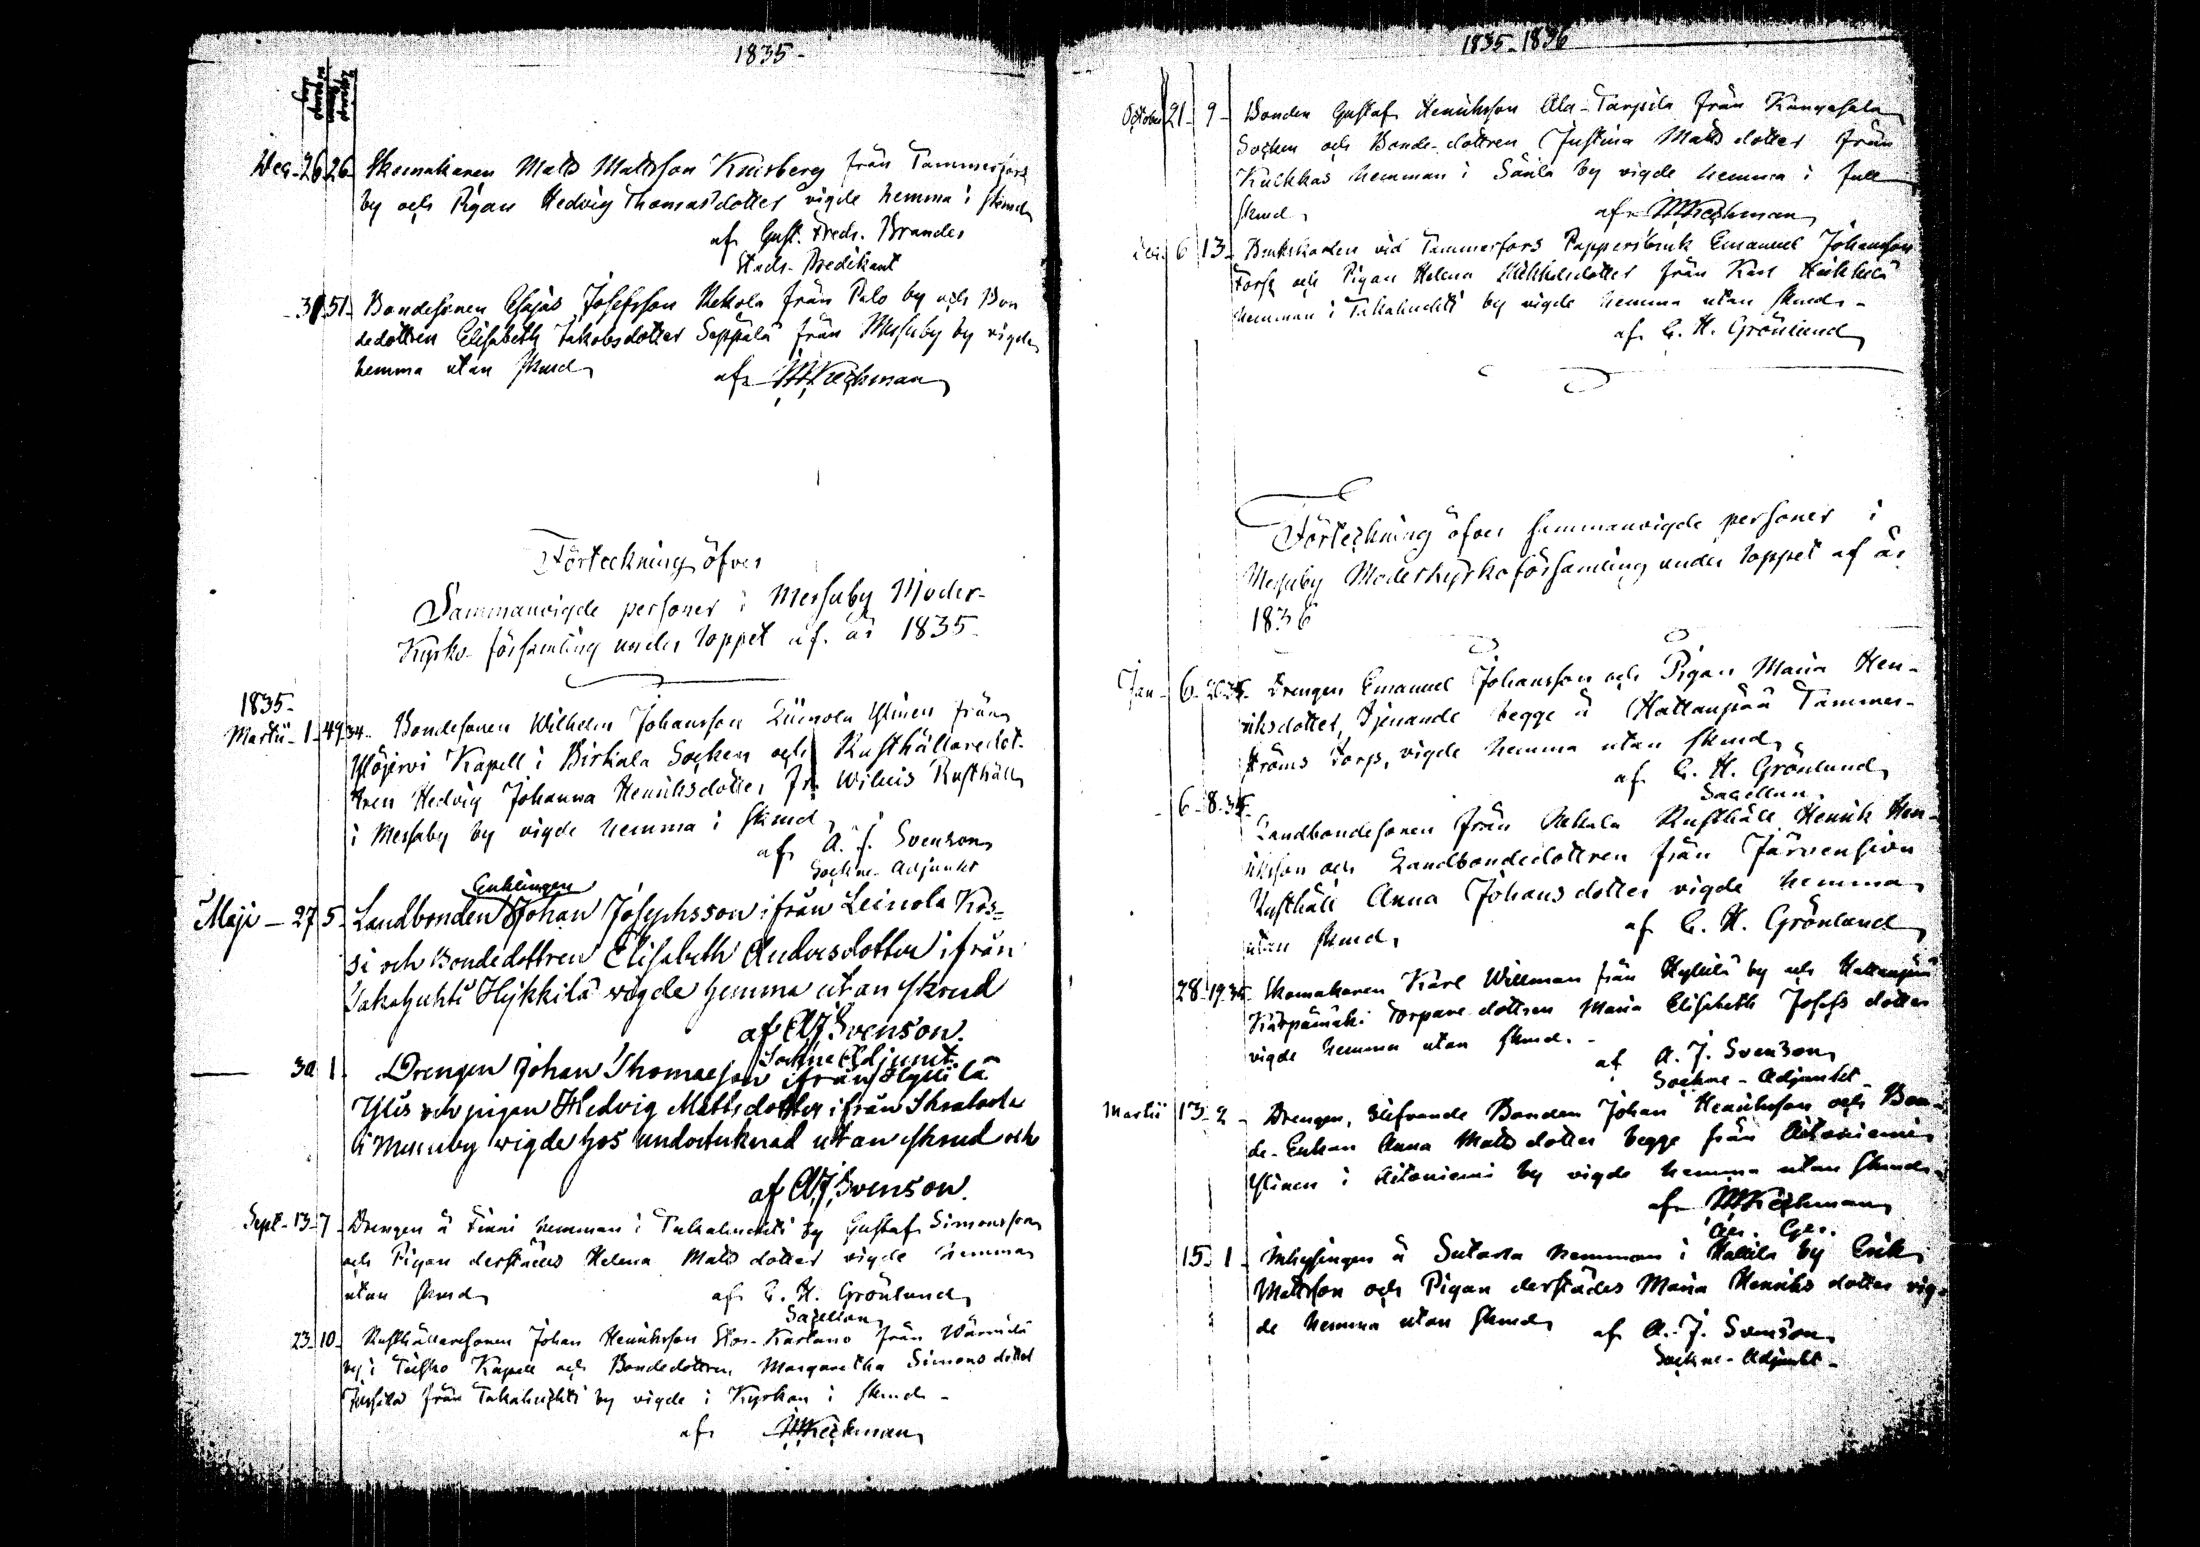 1835-
Dec. 26 26 Skomakaren Matts Mattsson Knisberg från Tammerfors
by och Pigan Hedvig Thomasdotter vigde hemma i skrud
af Gust. Fredr. Brander
Stads-Predikant
31 51 Bondesonen Esajas Josefsson Uskola från Palo by och Bon
dedottren Elisabeth Jakobsdotter Seppälä från Messuby by vigde
hemma utan skrud
af
Förteckning öfver
Sammanvigde personer i Messuby Moder-
Kyrko-församling under loppet af år 1835
1835-
Martii 1 49 34 Bondesonen Wilhelm Johansson Ylinen från
Ylöjervi Kapell i Birkala Socken och Rusthållaredot-
tren Hedvig Johanna Henriksdotter fr. Wilus Rusthåll
i Messuby by vigde hemma i skrud
af A. J. Svenson
Sockne-Adjunkt
Enklingen
Maji - 27 5 Landbonden Johan Josephsson ifrån Leinola Kos-
si och Bondedottren Elisabeth Andersdotter ifrån
Takahuhti Heikkilä wigde hemma utan skrud
af A J Svenson.
Sockne Adjunct.
30 1 Drengen Johan Thomasson ifrån Hyllilä
Ylis och pigan Hedvig Mattsdotter ifrån
i Messuby wigde hos undertecknad utan skrud och
af A J Svenson.
Sept. 13 7 Drengen å Finni hemman i Takahuchti by Gustaf Simonsson
och Pigan derstädes Helena Matts dotter vigde hemma
utan skrud
af C. H. Grönlund
Sacellan
23 10 Rusthållaresonen Johan Henriksson Stor-Kartano från
by i Teisko Kapell och Bondedottren Margaretha Simons dotter
Jussila från Takahuchti by vigde i Kyrkan i skrud -
af
1835-1836
October 21 9 Bonden Gustaf Henriksson Ala-Tarpila från Kangasala
Socken och Bonde-dottren Justina Matts dotter från
Kuckkas hemman i by vigde hemma i full
skrud
af
Dec. 6 13 Brukskarlen vid Tammerfors Pappersbruk Emanuel Johansson
Forss och Pigan Helena Mikkelsdotter från Heikkilä
hemman i Takahuchti by vigde hemma utan skrud -
af C. H. Grönlund
Förteckning öfver sammanvigde personer i
Messuby Moderkyrkoförsamling under loppet af år
1836
Jan - 6 Drengen Emanuel Johansson och Pigan Maria Hen-
riksdotter, tjenande begge å Hattanpää Tammer-
ströms Torp, vigde hemma utan skrud
af C. H. Grönlund
Sacellan
6 8 35 Landbondesonen från Rusthåll Henrik Hen-
riksson och Landbondedottren från Järvensivu
Rusthåll Anna Johans dotter vigde hemma
utan skrud
af C. H. Grönlund
28 19 35 Skomakaren Karl Willman från Hyllilä by och Hattanpää
Kärpämäki Torpare dottren Maria Elisabeth Josefs dotter
vigde hemma utan skrud. -
af A. J. Svenson
Sockne-Adjunkt
Martii 13 2 Drengen, blifvande Bonden Johan Henriksson och Bon-
de-Enkan Anna Matts dotter begge från Aitoniemi
Ylinen i Aitoniemi by vigde hemma utan skrud
af
15 1 Inhysingen å hemman i Hallila by Erik
Mattsson och Pigan derstädes Maria Henriks dotter vig-
de hemma utan skrud
af A. J. Svenson
Sockne-Adjunkt -